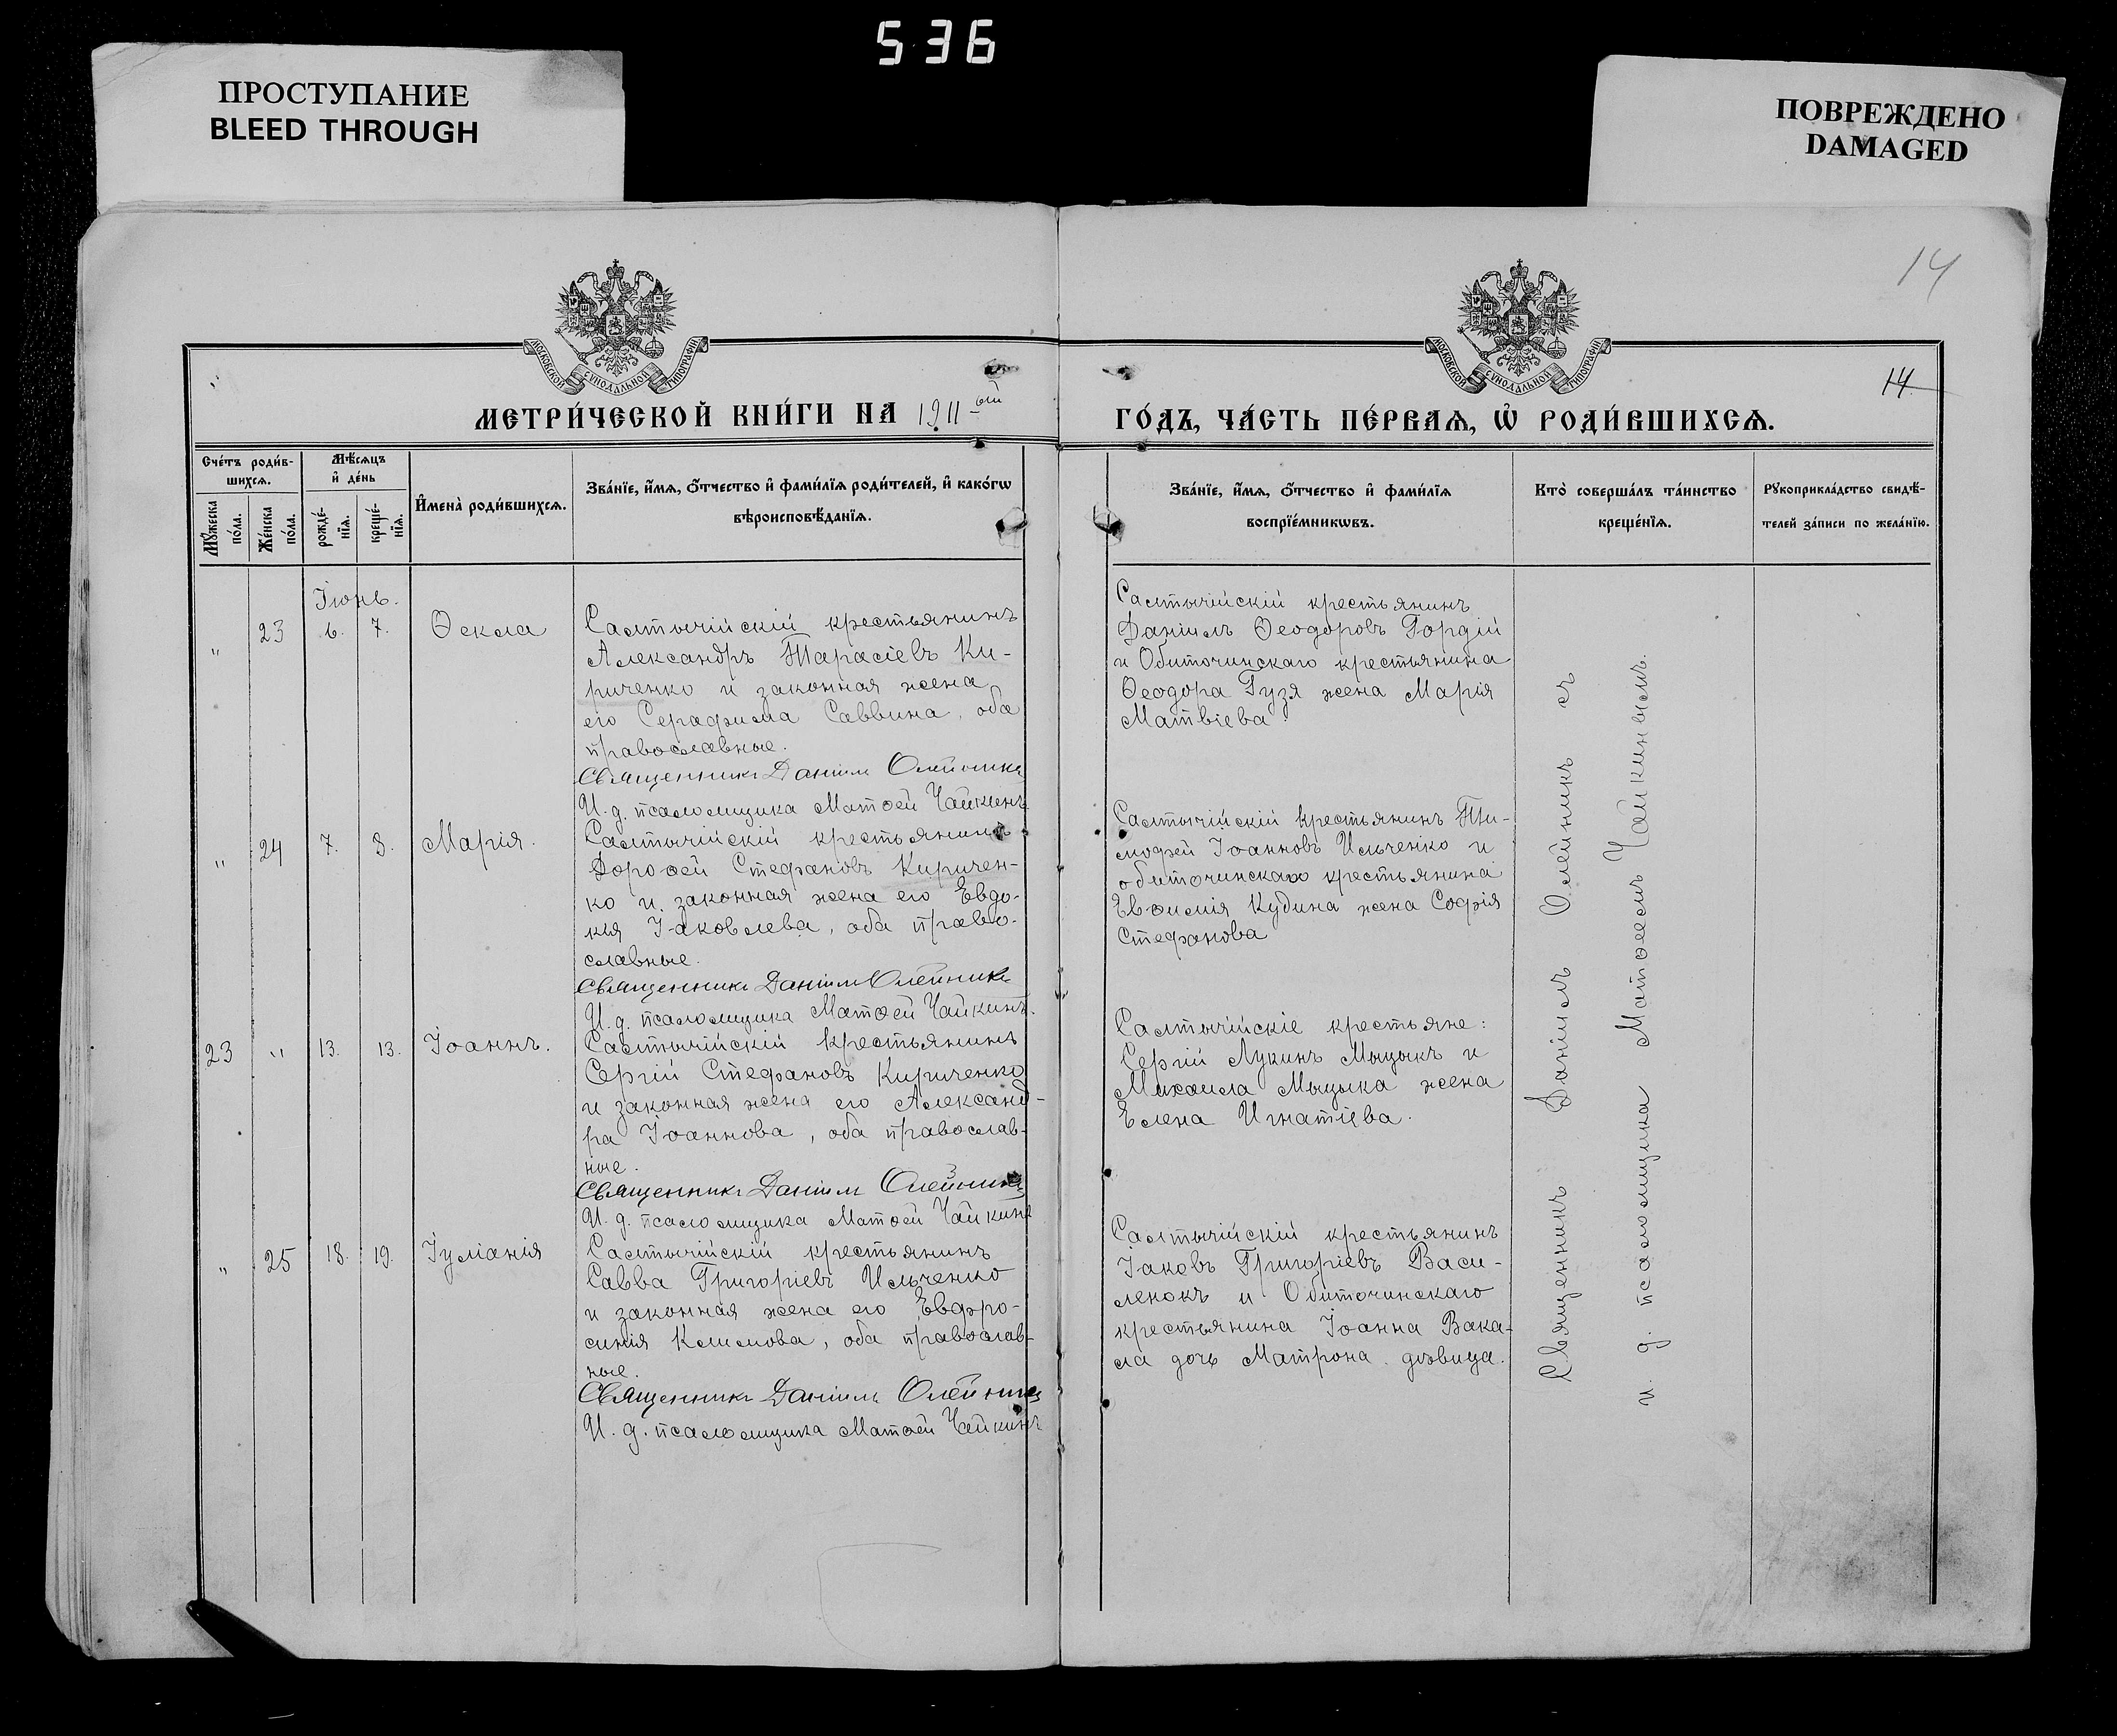 536
ПРОСТУПАНИЕ
BLEED THROUGH
ПОВРЕЖДЕНО
DAMAGED
14
МОСКОВСКОЙ СѴНОДАЛЬНОЙ ТИПОГРАФІИ
МОСКОВСКОЙ СѴНОДАЛЬНОЙ ТИПОГРАФІИ
14
МЕТРИ́ЧЕСКОЙ КНИ́ГИ НА 1911-ый
ГО́ДЪ, ЧА́СТЬ ПЕ́РВАѦ, Ѡ҆ РОДИ́ВШИХСѦ.
Сче́тъ роди́в-
шихсѧ.
Мѣ́сѧцъ
и҆ де́нь
Мꙋ́жеска
по́ла.
Же́нска
по́ла.
рожде́-
нїѧ.
креще́-
нїѧ.
И҆мена̀ роди́вшихсѧ.
Зва́нїе, и҆́мѧ, ѻ҆́тчество и҆ фами́лїѧ роди́телей, и҆ како́гѡ
вѣроисповѣ́данїѧ.
Зва́нїе, и҆́мѧ, ѻ҆́тчество и҆ фами́лїѧ
воспрїе́мникѡвъ.
Кто̀ соверша́лъ та́инство
креще́нїѧ.
Рꙋкоприкла́дство свидѣ́-
телей за́писи по жела́нїю.
Іюнь.
" 23 6. 7. Ѳекла
Салтычійскій крестьянинъ
Александръ Тарасіевъ Ки-
риченко и законная жена
его Серафима Саввина, оба
православные.
Священникъ Даніилъ Олейникъ
И. д. псаломщика Матѳей Чайкинъ
Салтычійскій крестьянинъ
Даніилъ Ѳеодоровъ Гордій
и Обиточинскаго крестьянина
Ѳеодора Гузя жена Марія
Матвіева
" 24 7. 8. Марія.
Салтычійскій крестьянинъ
Дороѳей Стефановъ Киричен-
ко и законная жена его Евдо-
кія Іаковлева, оба право-
славные.
Священникъ Даніилъ Олейникъ
И. д. псаломщика Матѳей Чайкинъ.
Салтычійскій крестьянинъ Ти-
мофей Іоанновъ Ильченко и
обиточинскаго крестьянина
Евѳимія Кудина жена Софія
Стефанова
23 " 13. 13. Іоаннъ.
Салтычійскій крестьянинъ
Сергій Стефановъ Кириченко
и законная жена его Александ-
ра Іоаннова, оба православ-
ные.
Священникъ Даніилъ Олейникъ
И. д. псаломщика Матѳей Чайкинъ
Салтычійскіе крестьяне:
Сергій Лукинъ Мыцыкъ и
Михаила Мыцыка жена
Елена Игнатіева.
" 25 18. 19. Іуліанія
Салтычійскій крестьянинъ
Савва Григоріевъ Ильченко
и законная жена его Евфро-
синія Климова, оба православ-
ные.
Священникъ Даніилъ Олейникъ
И. д. псаломщика Матѳей Чайкинъ
Салтычійскій крестьянинъ
Іаковъ Григоріевъ Васи-
ленокъ и Обиточинскаго
крестьянина Іоанна Вака-
ла дочь Матрона девица.
Священникъ Даніилъ Олейникъ съ
и. д. псаломщика Матѳеемъ Чайкинымъ.